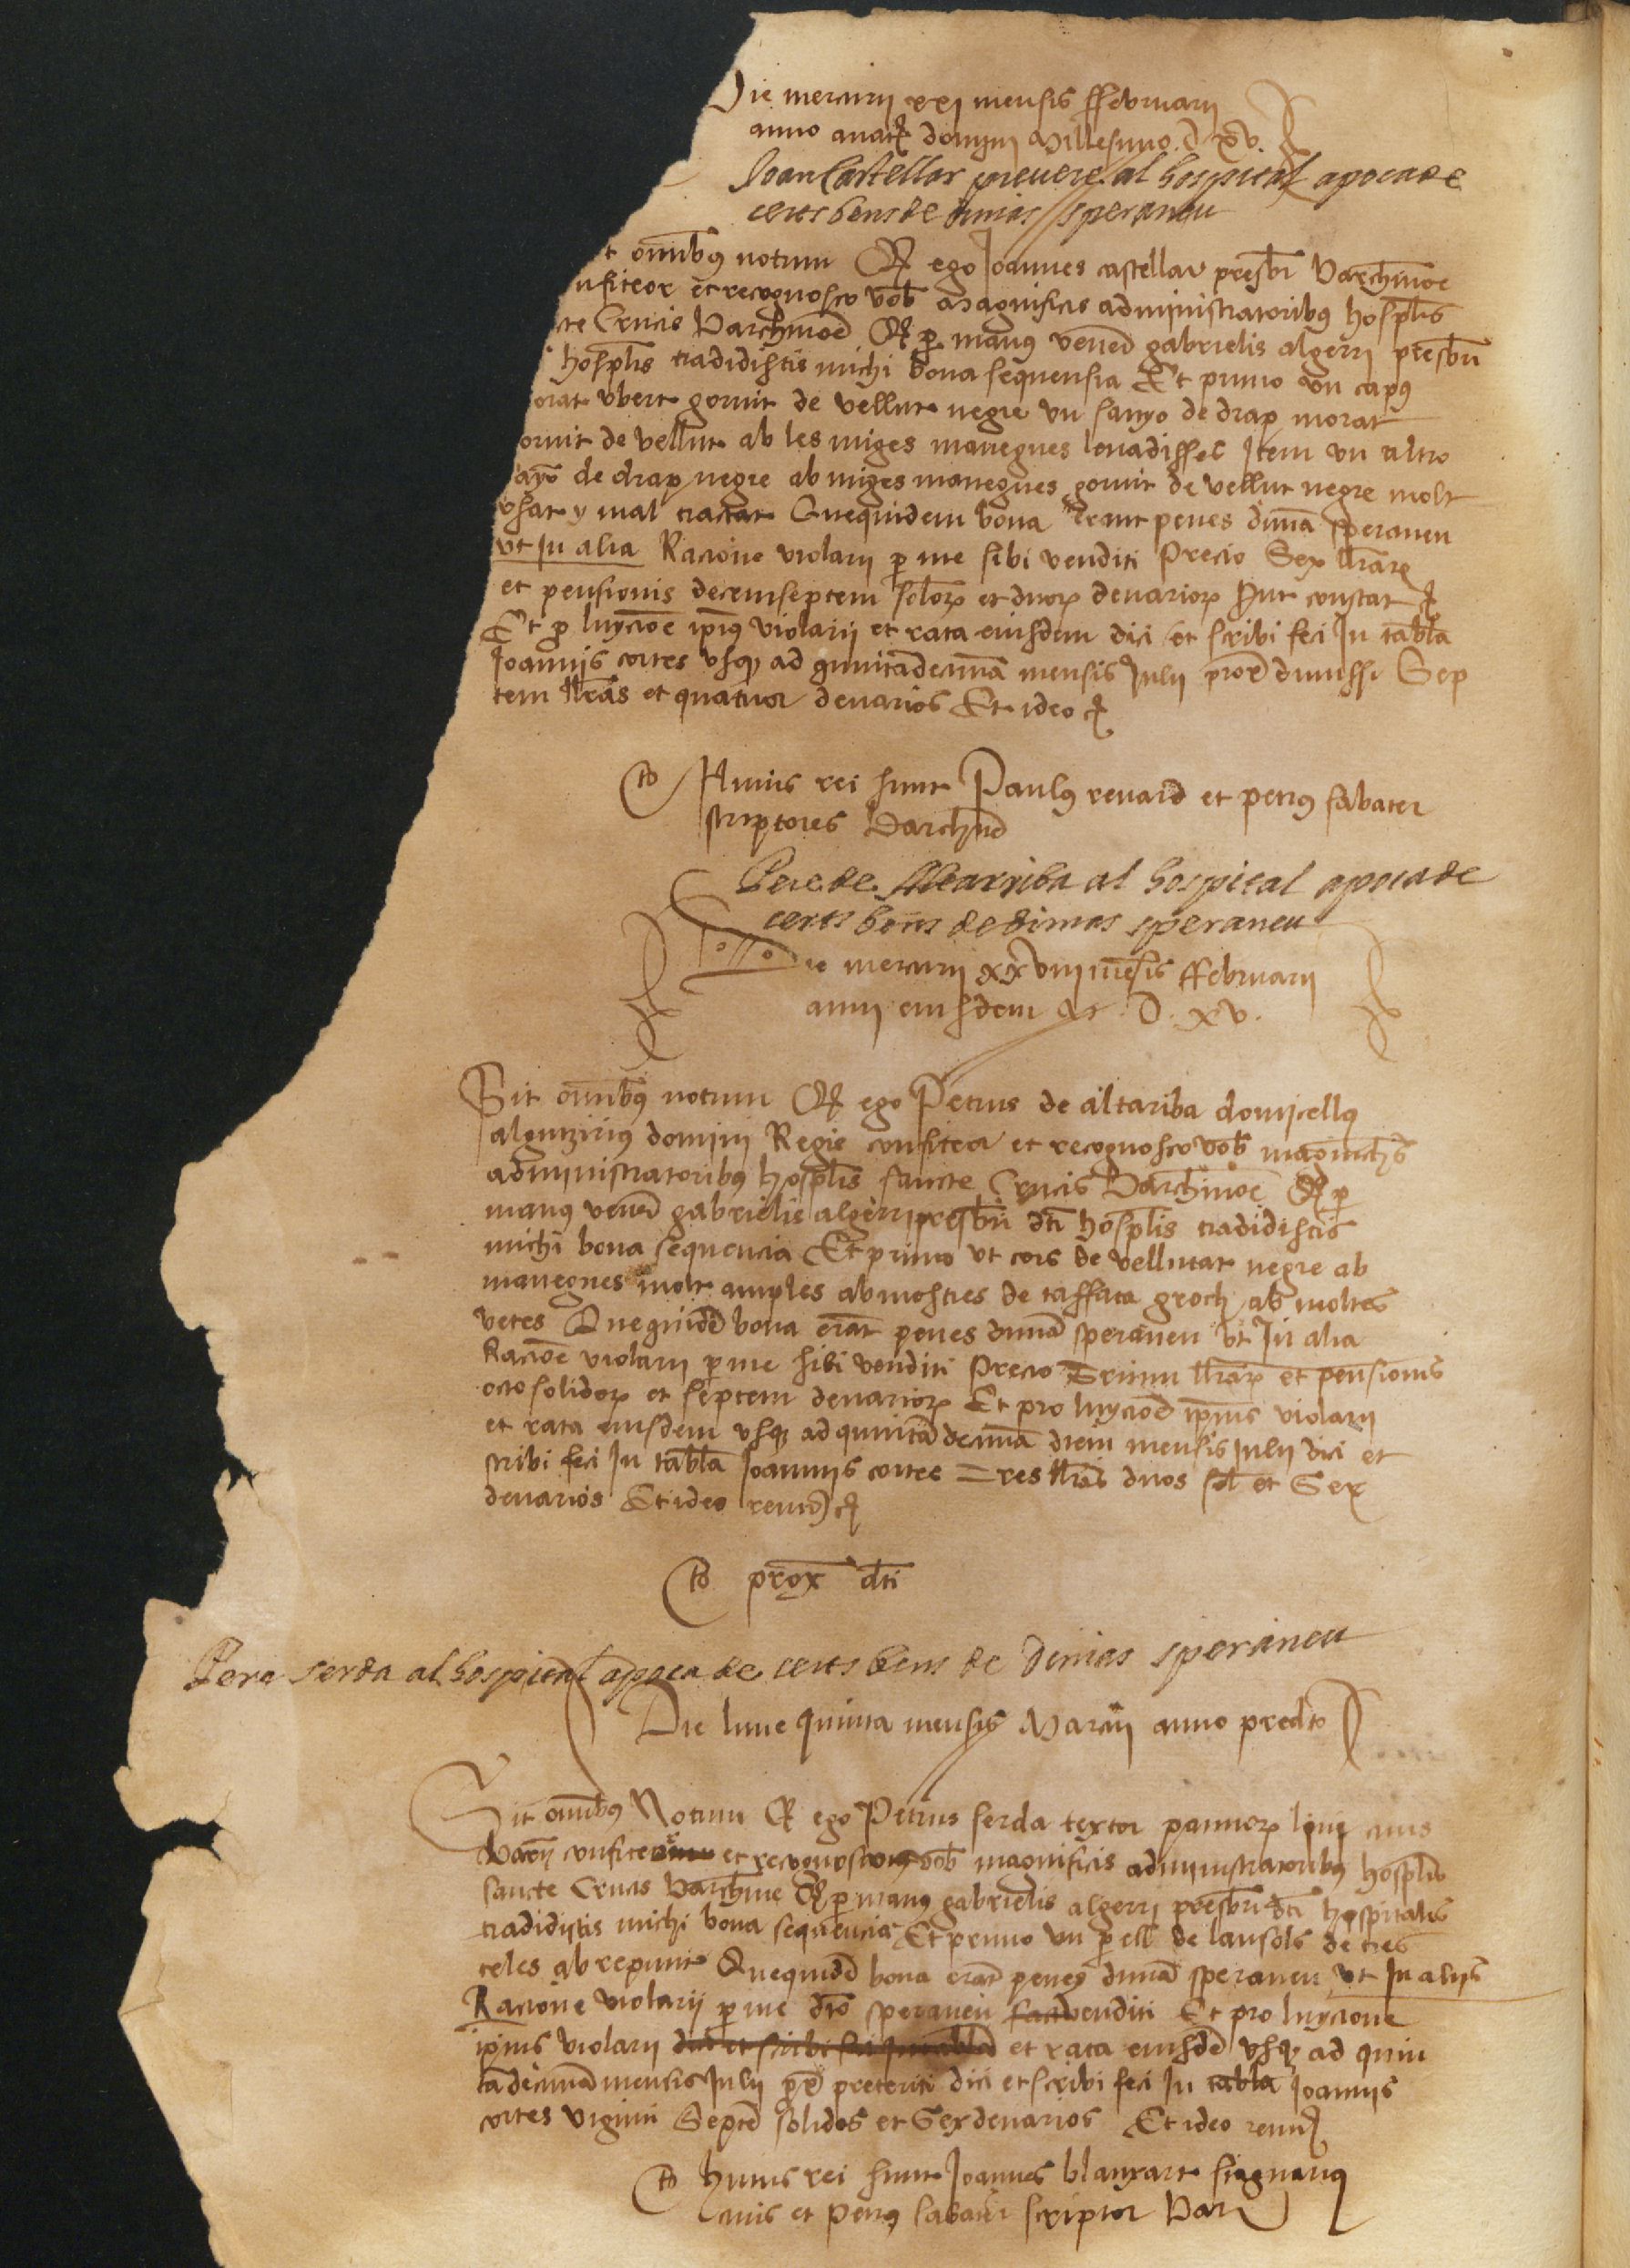 Die mercurij xxj mensis ffebruarij
anno a natẽ domini Millesimo. d xv.
Joan Castellar prevere al hospital apoca de
certs bens de dimas speraneu
t omnibꝰ notum Q ego Joannes castellar presbr̃ Barchinoe
nfiteor et recognosco vob̃ Magnificis administratoribꝰ hosplis
cte Crucis Barchinoẽ Q p manꝰ veneñ gabrielis algerij presbrĩ
hosplis tradidistis michi bona sequensia Et primo vn capꝰ
orat vbert gornit de vellut negre vn sayo de drap morat
ornit de vellut ab les miges manegues levadisses Item vn altro
ayo de drap negre ab miges manegues gornit de vellut negre molt
vsat y mal tractat Quequidem bona erant penes dimã speraneu
vt In alia Racione violarij p me sibi venditi Precio Sex llrarꝝ
et pensionis decemseptem solorꝝ et duorꝝ denariorꝝ put constat
Et p luycioẽ ipiꝰ violarij et rata eiusdem dici et scribi feci In tabla
Joannis cortes vsqꝫ ad quintãdecimã mensis Julij
tem llras et quatuor denarios Et ideo
to Huius rei sunt Paulꝰ renard et petrꝰ sabater
scriptores Barchñ
Pere de Altarriba al hospital apoca de
certs bens de dimas speraneu
ie mercurij xxviij mẽsis ffebruarij
anni eiusdem M. D. xv.
Sit omnibꝰ notum Q ego Petrus de altariba domicellꝰ
algutziriꝰ domini Regis confiteor et recognosco vob̃ magnificis
administratoribꝰ hosplis sancte Crucis Barchinoe Q p
manꝰ veneñ gabrielis algerij presbrĩ dti hosplis tradidistis
michi bona sequencia Et primo vt cors de vellutat negre ab
manegues molt amples ab mostres de taffata groch ab moltes
vetes Quequidẽ bona erãt penes dimã speraneu vt In alia
Racioẽ violarij p me sibi venditi Precio Trium llrarꝝ et pensionis
octo solidorꝝ et septem denariorꝝ Et pro luycioẽ ipsius violarij
et rata eiusdem vsqꝫ ad quintã decimã diem mensis Julij dici et
scribi feci In tabla Joannis cortes Tres llras duos sol et Sex
denarios Et ideo renũ
to proxĩ dti
Pere serda al hospital apoca de certs bens de Dimas speraneu
Die lune quinta mensis Marcij anno predto
Sit omnibꝰ Notum Q ego Petrus serda textor pannorꝝ lini civis
Barcñ confiteor et recognosco vob̃ magnificis administratoribꝰ hosplis
sancte Crucis Barchine Q p manꝰ gabrielis algerij presbrĩ dti hospitalis
tradidistis michi bona sequencia Et primo vn pell de lansols de tres
teles ab repunt Quequidẽ bona erãt penes dimã speraneu vt In alijs
Racione violarij p me dto speraneu venditi Et pro luycione
ipsius violarij dici et scribi feci In tabla et rata eiusdẽ vsqꝫ ad quin
tã decimã mensis Julij preteriti dici et scribi feci In tabla Joannis
cortes viginti Septẽ solidos et Sex denarios Et ideo renũ
to huius rei sunt Joannes blanxart
civis et Petrꝰ sabater scriptor Bar